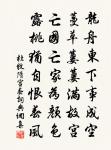 龍舟東下事成空
蔓草萋萋滿故宮
亡國亡家為顏色
露桃猶自恨春風
杜牧隋宮春